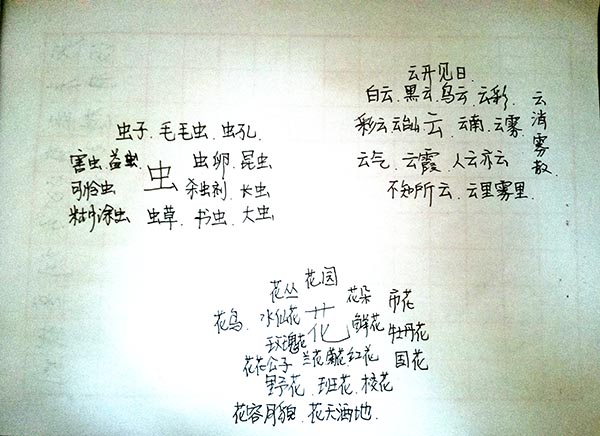 云开见日
白云.黑云.乌云.云彩.
彩云.云山.云.云南.云雾
云气.云霞.人云亦云
不知所云.云里雾里.
云消雾散
虫子.毛毛虫.虫孔.
害虫.益虫 虫 虫卵.昆虫
可怜虫 杀虫剂.长虫
糊涂虫 虫草.书虫.大虫
花丛 花园 花朵 市花
花鸟.水仙花 花 鲜花 牡丹花
玫瑰花
花花公子 兰花 菊花 红花 国花
野花.班花.校花
花容月貌.花天酒地.